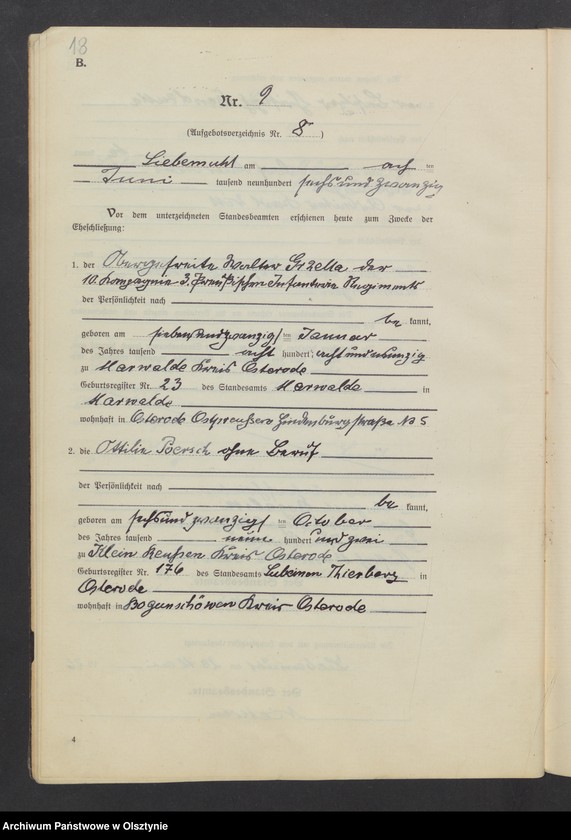 18
B.
Nr. 9
(Aufgebotsverzeichnis Nr. 8)
Liebemühl am acht ten
Juni tausend neunhundert sechs und zwanzig
Vor dem unterzeichneten Standesbeamten erschienen heute zum Zwecke der
Eheschließung:
1. der Obergefreite Walter Grzella der
10. Kompagnie 3. Preußischen Infanterie Regiments
der Persönlichkeit nach
be kannt,
geboren am sieben und zwanzigsten Januar
des Jahres tausend acht hundert acht und neunzig
zu Marwalde Kreis Osterode
Geburtsregister Nr. 23 des Standesamts Marwalde in
Marwalde
wohnhaft in Osterode Ostpreußen Hindenburgstraße No 5
2. die Ottilie Poersch ohne Beruf
der Persönlichkeit nach
be kannt,
geboren am sechs und zwanzigsten October
des Jahres tausend neun hundert und zwei
zu Klein Reußen Kreis Osterode
Geburtsregister Nr. 176 des Standesamts Thierberg in
Osterode
wohnhaft in Bogunschöwen Kreis Osterode
4
Archiwum Państwowe w Olsztynie